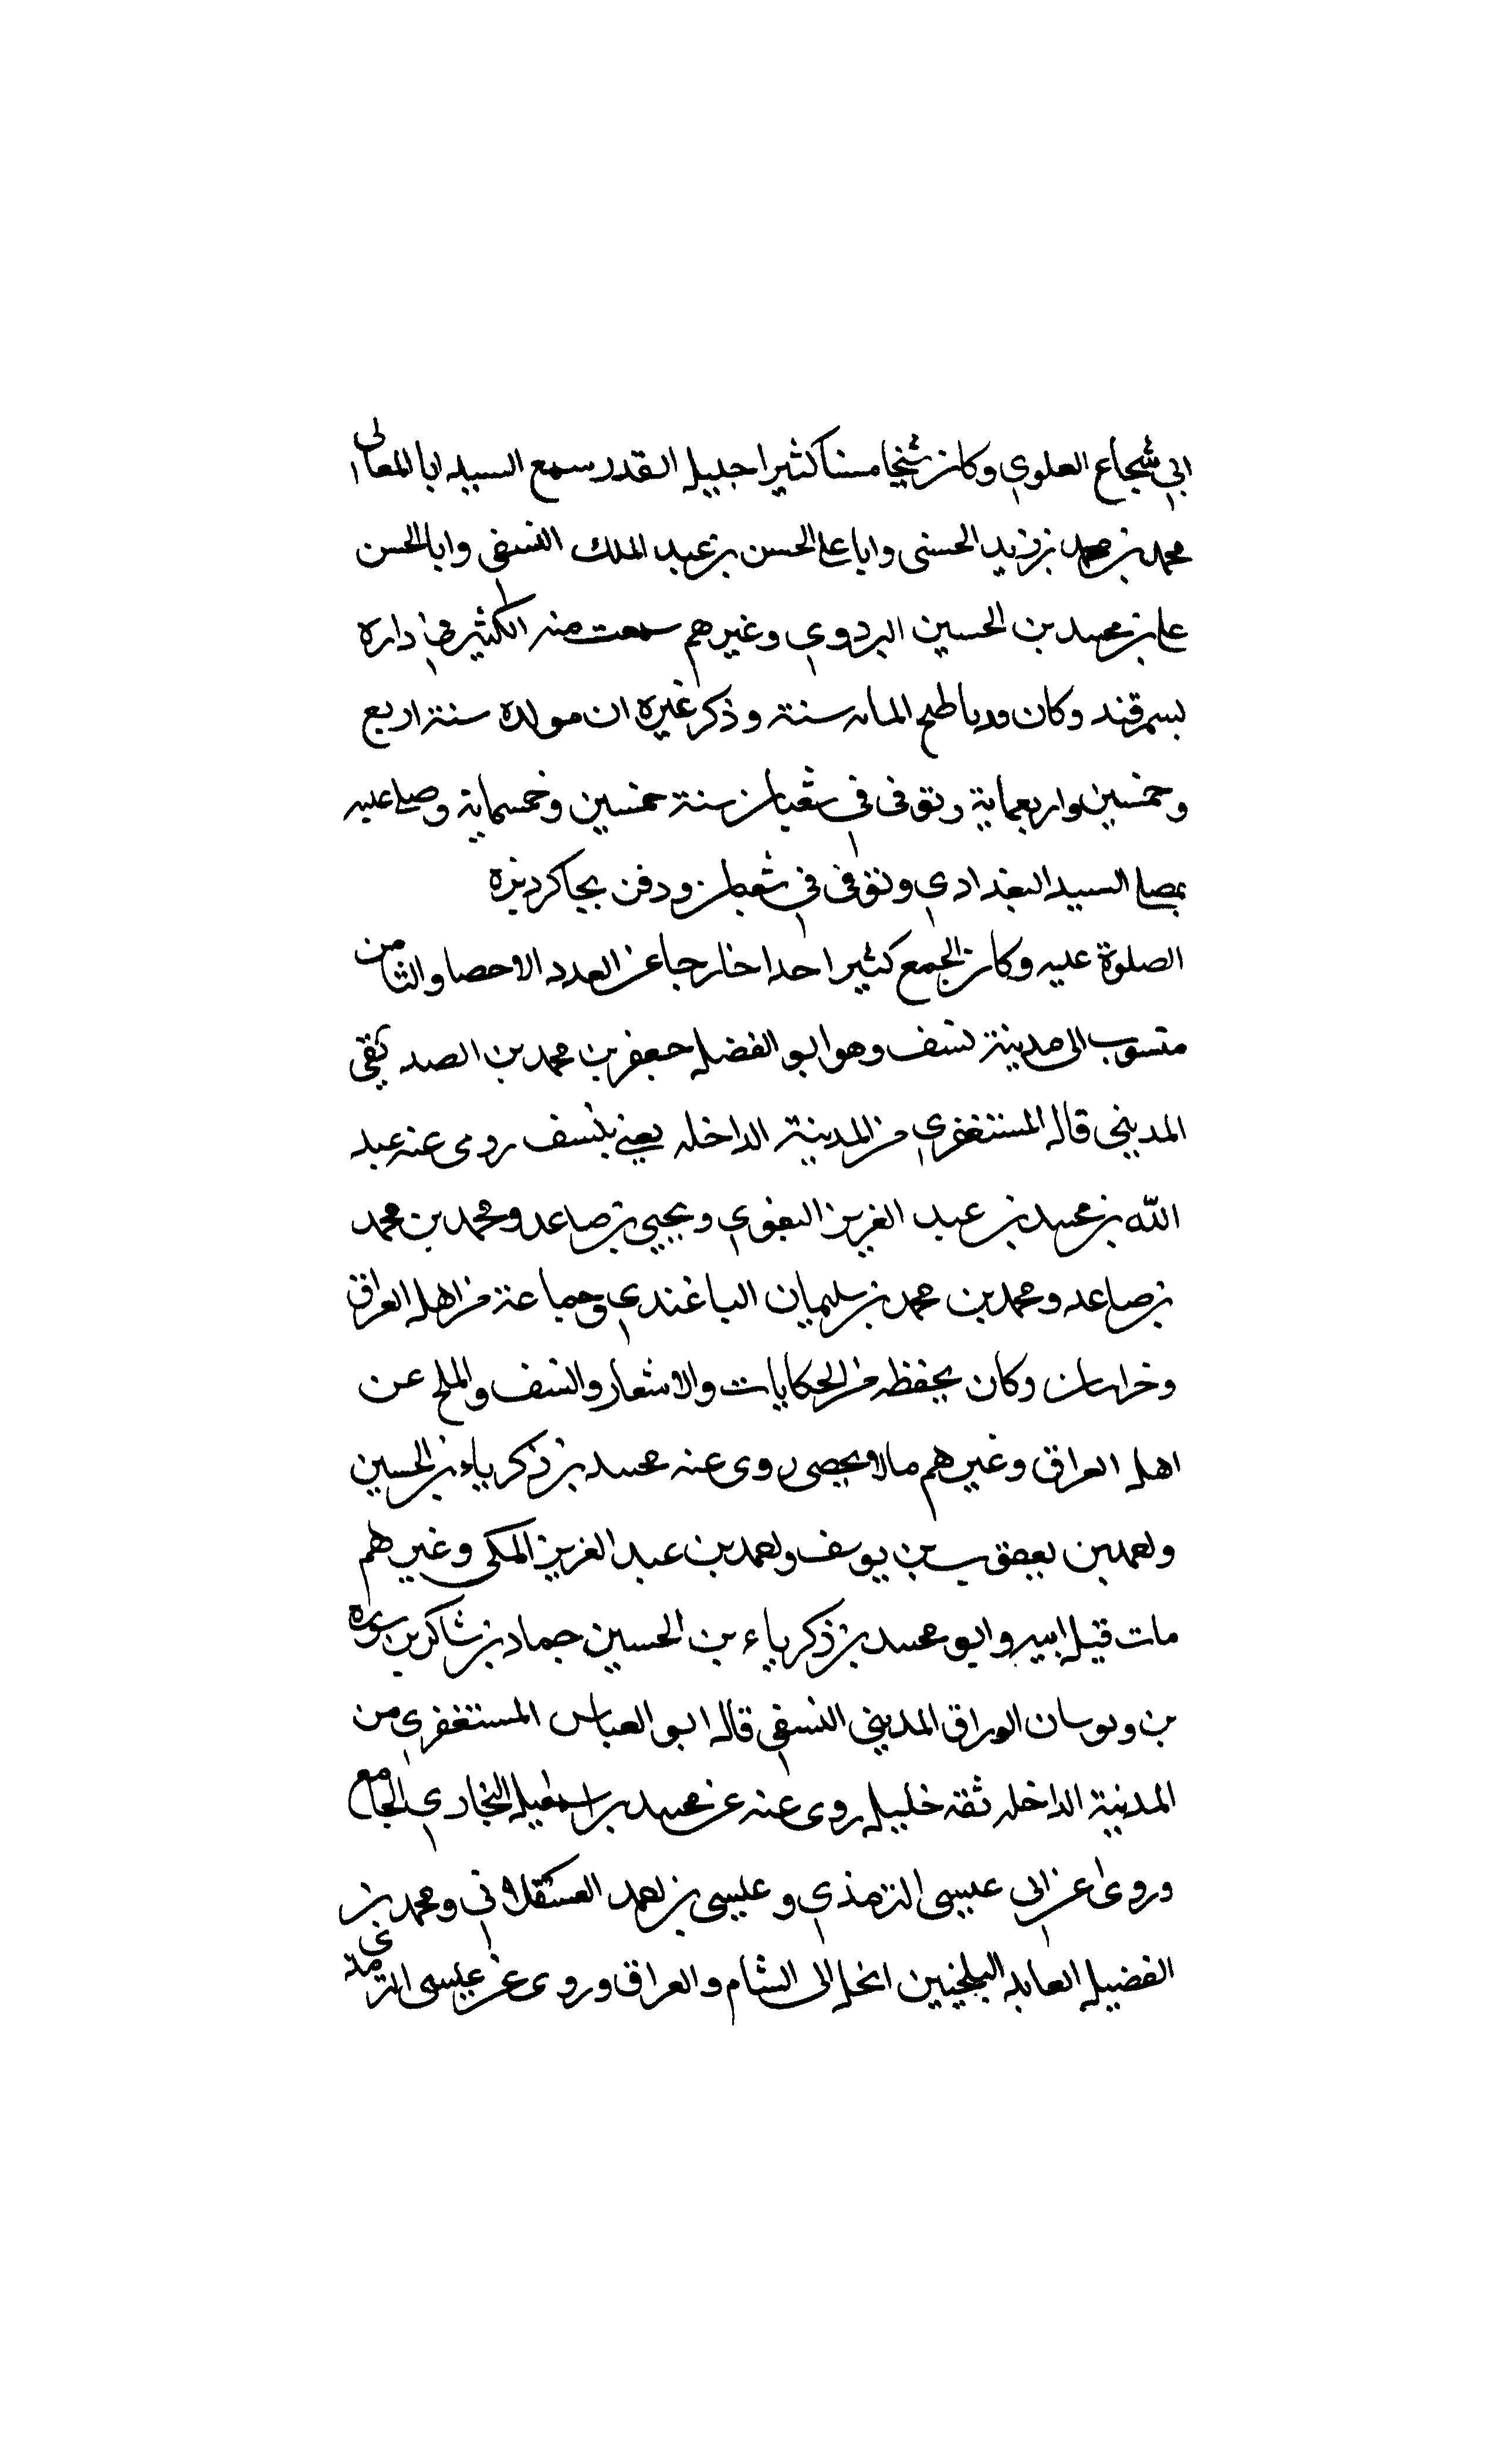 ابي شجاع العلوي وكان شيخا مسنا كثيرا جليل القدر سمع السيد ابا المعالي
محمد بن محمد بن زيد الحسني وابا علي الحسن بن عبد الملك النسفي وابا الحسن
علي بن محمد بن الحسين البزدوي وغيرهم سمعت منه الكثير في داره
بسمرقند وكان سنة وذكر غيره ان مولده سنة اربع
وخمسين واربعماية وتوفى في شعبان سنة خمسين وخمسماية وصلي عليه
بمصلي السيد البغدادي وتوفى في شعبان ودفن بجاكرديزه
الصلوة عليه وكان الجمع كثيرا احدا خارجا عن العدد الاحصا والثامن
منسوب الى مدينة نسف وهو ابو الفضل جعفر بن محمد بن الصديقي
المديني قال المستغفري من المدينة الداخله يعني بنسف روى عنه عبد
الله بن محمد بن عبد العزيز البغوي ويحيى بن صاعد ومحمد بن محمد
بن صاعد ومحمد بن محمد بن سليمان الباغندي وجماعة من اهل العراق
وخراسان وكان يحفظ من الحكايات والاشعار والنتف والملح عن
اهل العراق وغيرهم مالا يحصى روى عنه محمد بن زكرياء بن الحسين
واحمد بن يعقوب بن يوسف واحمد بن عبد العزيز المكي وغيرهم
مات قبل ابيه وابو محمد بن زكرياء بن الحسين حماد بن شاكر بن سوره
بن ونوسان الوراق المديني النسفي قال ابو العباس المستغفري من
المدينة الداخله ثقه جليل روى عنه عن محمد بن اسمعيل البخاري الجامع
وروى عن ابي عيسى الترمذي وعيسى بن احمد العسقلاني ومحمد بن
الفضيل العابد البلخيين الى الشام والعراق وروى عن عيسى الترمذي